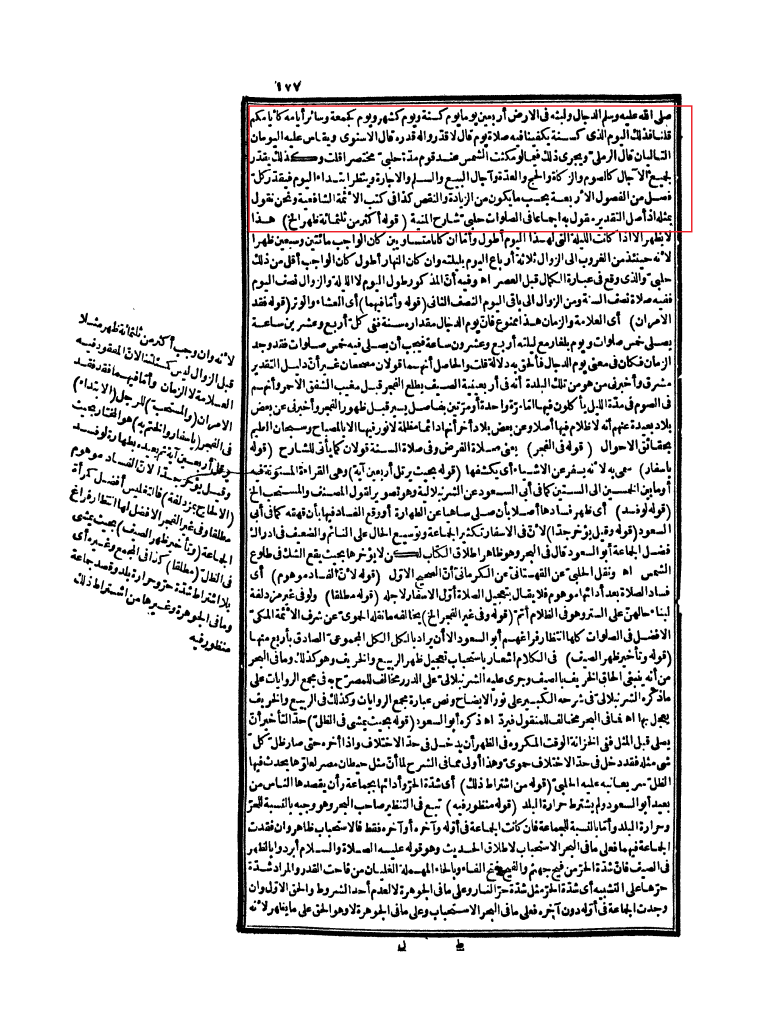 ١٧٧
صلى الله عليه وسلم الدجال ولبثه فى الارض أربعين يوما يوم كسنة ويوم كشهر ويوم كجمعة وسائر أيامه كأيامكم
قلنا فذلك اليوم الذى كسنة يكفينا فيه صلاة يوم قال لا قدروا له قدره قال الاسنوى ويقاس عليه اليومان
التاليان قال الرملى ويجرى ذلك فيما لو مكثت الشمس عند قوم مدة حلبى مختصرا قلت وكذلك يقدر
لجميع الآجال كالصوم والزكاة والحج والعدة وآجال البيع والسلم والاجارة وينظر ابتداء اليوم فيقدر كل
فصل من الفصول الأربعة بحسب ما يكون من الزيادة والنقص كذا فى كتب الائمة الشافعية ونحن نقول
بمثله اذ أصل التقدير مقول به اجماعا فى الصلوات حلبى شارح المنية (قوله أكثر من ثلثمائة ظهر الخ) هذا
لا يظهر الا اذا كانت الليلة التى لهذا اليوم أطول وأما ان كانا متساويين كان الواجب مائتين وسبعين ظهرا
لأنه حينئذ من الغروب الى الزوال ثلاثة أرباع اليوم بليلته وان كان النهار أطول كان الواجب أقل من ذلك
حلبى والذى وقع فى عبارة الكمال قبل العصر اه وفيه أن المذكور طول اليوم لا الليلة والزوال نصف اليوم
ففيه صلاة نصف السنة ومن الزوال الى باقى اليوم النصف الثانى (قوله وأما فيهما) أى العشاء والوتر (قوله فقد
الامران) أى العلامة والزمان هذا ممنوع فان يوم الدجال مقداره سنة ففى كل أربع وعشرين ساعة
يصلى خمس صلوات ويوم بلغار مع ليلته أربع وعشرون ساعة فيجب أن يصلى فيه خمس صلوات فقد وجد
الزمان فكان فى معنى يوم الدجال فألحق به دلالة قلت والحاصل أنهما قولان مصححان غير أن دليل التقدير
مشرق وأخبرنى من هو من تلك البلدة أنه فى أربعينية الصيف يطلع الفجر قبل مغيب الشفق الاحمر وأنهم
فى الصوم فى مدة الليل يأكلون فيها امّا مرة واحدة أو مرتين بفاصل يسير قبل ظهور الفجر وأخبرنى عن بعض
بلاد بعيدة عنهم أنه لا ظلام فيها أصلا وعن بعض بلاد أخر أنها دائما مظلمة لا نور فيها الا بالمصباح وسبحان العليم
بحقائق الاحوال (قوله فى الفجر) يعنى صلاة الفرض وفى صلاة السنة قولان كما يأتى للشارح (قوله
باسفار) سمى به لأنه يسفر عن الاشياء أى يكشفها (قوله بحيث يرتل أربعين آية) وهى القراءة المسنونة فيه
أو ما بين الخمسين الى الستين كما فى أبى السعود عن الشرنبلالية وهو تصوير لقول المصنف والمستحب الخ
(قوله لو فسد) أى ظهر فسادها أصلا بأن صلى ساهيا عن الطهارة أو رفع الفساد فيها بأن قهقه كما فى أبى
السعود (قوله وقيل يؤخر جدا) لأن فى الاسفار تكثير الجماعة وتوسيع الحال على النائم والضعيف فى ادراك
فضل الجماعة أبو السعود قال فى البحر وهو ظاهر اطلاق الكتاب لكن لا يؤخرها بحيث يقع الشك فى طلوع
الشمس اه ونقل الحلبى عن القهستانى عن الكرمانى أن الصحيح الاول (قوله لأن الفساد موهوم) أى
فساد الصلاة بعد أدائها موهوم فلا يقال بتعجيل الصلاة أول الاسفار لاجله (قوله مطلقا) ولو فى غير مزدلفة
لبناء حالهن على الستر وهو فى الظلام أتم (قوله وفى غير الفجر الخ) يخالفه ما نقله الحموى عن شرف الأئمة المكى
الافضل فى الصلوات كلها انتظار فراغهم أبو السعود الا أن يراد بالكل الكل المجموعى الصادق بأربع منها
(قوله وتأخير ظهر الصيف) فى الكلام اشعار باستحباب تعجيل ظهر الربيع والخريف وهو كذلك وما فى البحر
من أنه ينبغى الحاق الخريف بالصيف وجرى عليه الشرنبلالى على الدرر مخالف للمصرح به فى مجمع الروايات على
ما ذكره الشرنبلالى فى شرحه الكبير على نور الايضاح ونص عبارة مجمع الروايات وكذلك فى الربيع والخريف
يعجل بها اه فما فى البحر مخالف للمنقول فيرد اه ذكره أبو السعود (قوله بحيث يمشى فى الظل) حد التأخير أن
يصلى قبل المثل ففى الخزانة الوقت المكروه فى الظهر أن يدخل فى حد الاختلاف واذا أخره حتى صار ظل كل
شئ مثله فقد دخل فى حد الاختلاف حموى وهذا أولى مما فى الشرح لما أن مثل حيطان مصر لعلوها يحدث فيها
الظل سريعا نبه عليه الحلبى (قوله من اشتراط ذلك) أى شدة الحر وأدائها بجماعة وأن يقصدها الناس من
بعيد أبو السعود ولم يشترط حرارة البلد (قوله منظور فيه) تبع فى التنظير صاحب البحر وهو وجيه بالنسبة للحر
وحرارة البلد وأما بالنسبة للجماعة فان كانت الجماعة فى أوله وآخره أو آخره فقط فالاستحباب ظاهر وان فقدت
الجماعة فيهما فعلى ما فى البحر الاستحباب لاطلاق الحديث وهو قوله عليه الصلاة والسلام أبردوا بالظهر
فى الصيف فان شدة الحر من فيح جهنم والفيح بفتح الفاء وبالحاء المهملة الغليان من فاحت القدر والمراد شدة
حرها على التشبيه أى شدة الحر مثل شدة حر النار وعلى ما فى الجوهرة لا لعدم أحد الشروط والحق الاول وان
وجدت الجماعة فى أوله دون آخره فعلى ما فى البحر الاستحباب وعلى ما فى الجوهرة لا وهو الحق على ما يظهر لأنه
لأنه وان وجب أكثر من ثلثمائة ظهر مثلا
قبل الزوال ليس كمسئلتنا لأن المفقود فيه
العلامة لا الزمان وأما فيها فقد فقد
الامران (والمستحب) للرجل (الابتداء)
فى الفجر (باسفار والختم به) هو المختار بحيث
يرتل أربعين آية ثم يعيده بطهارة لو فسد
وقيل يؤخر جدا لأن الفساد موهوم
(الا لحاج بمزدلفة) فالتغليس أفضل كمرأة
مطلقا وفى غير الفجر الافضل لها انتظار فراغ
الجماعة (وتأخير ظهر الصيف) بحيث يمشى
فى الظل (مطلقا) كذا فى المجمع وغيره أى
بلا اشتراط شدة حر وحرارة بلد وقصد جماعة
وما فى الجوهرة وغيرها من اشتراط ذلك
منظور فيه